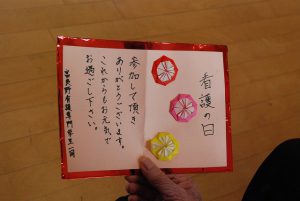 看護の日
参加して頂き
ありがとうございます。
これからもお元気で
お過ごし下さい。
看護専門学生一同